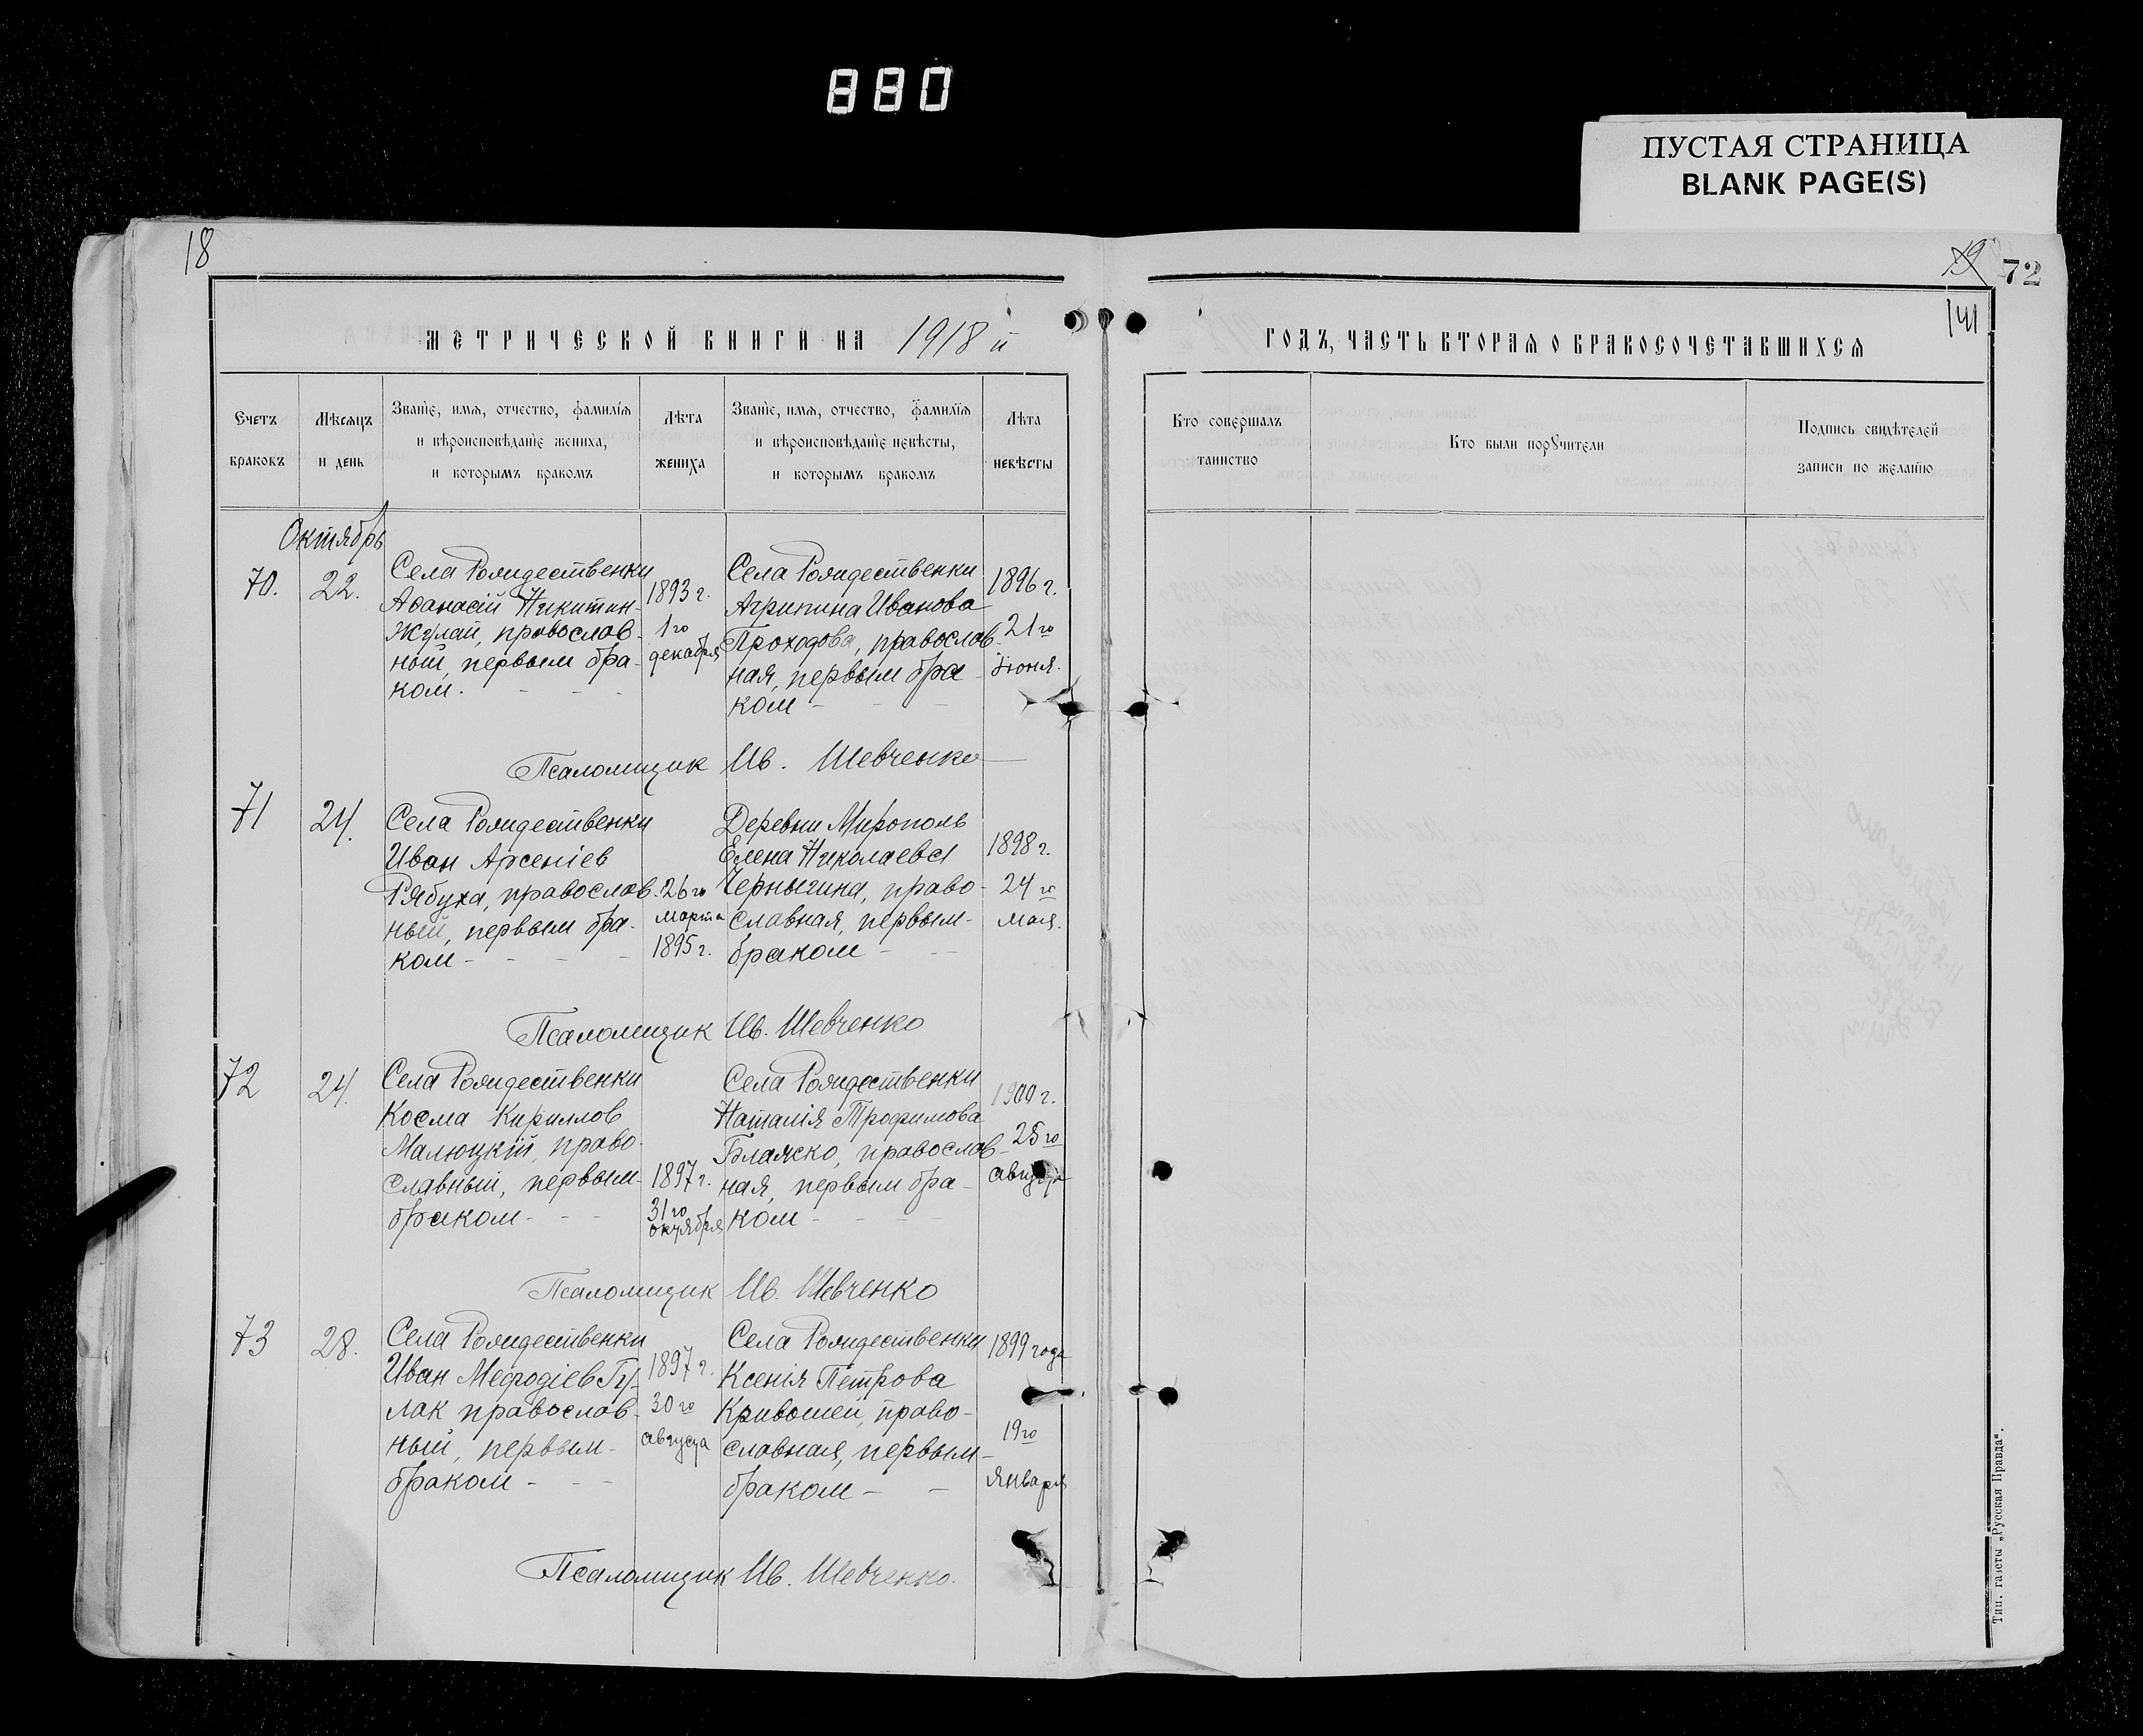 880
ПУСТАЯ СТРАНИЦА
BLANK PAGE(S)
18
19
72
141
МЕТРИЧЕСКОЙ КНИГИ НА 1918 й
ГОДЪ, ЧАСТЬ ВТОРАЯ О БРАКОСОЧЕТАВШИХСЯ
Счетъ
браковъ
Мѣсяцъ
и день
Званіе, имя, отчество, фамилія
и вѣроисповѣданіе жениха,
и которымъ бракомъ
Лѣта
жениха
Званіе, имя, отчество, фамилія
и вѣроисповѣданіе невѣсты,
и которымъ бракомъ
Лѣта
невѣсты
Кто совершалъ
таинство
Кто были поручители
Подпись свидѣтелей
записи по желанію
Октябрь
70.
22.
Села Рождественки
Афанасій Никитин-
Жулай, православ-
ный, первым бра-
ком. - - -
1893 г.
1го
декабря
Села Рождественки
Агрипина Иванова
Проходова, православ-
ная, первым бра-
ком - - -
1896 г.
21го
Іюня.
Псаломщик Ив. Шевченко
71
24.
Села Рождественки
Иван Арсеніев
Рябуха, православ-
ный, первым бра-
ком - - - -
26го
марта
1895 г.
Деревни Мирополь
Елена Николаева
Черныгина, право-
славная, первым-
браком - - -
1898 г.
24го
мая.
Псаломщик Ив. Шевченко
72
24.
Села Рождественки
Косма Кириллов
Малюцкій, право-
славный, первым-
браком - - -
1897 г.
31го
октября
Села Рождественки
Наталія Трофимова
Блажко, православ-
ная, первым бра-
ком - - - -
1900 г.
25го
августа
Псаломщик Ив. Шевченко
73
28.
Села Рождественки
Иван Мефодіев Гу-
лак православ-
ный, первым-
браком - - -
1897 г.
30го
августа
Села Рождественки
Ксенія Петрова
Кривошей, право-
славная, первым-
браком - -
1899 года
19го
января
Псаломщик Ив. Шевченко.
Тип. газеты „Русская Правда".